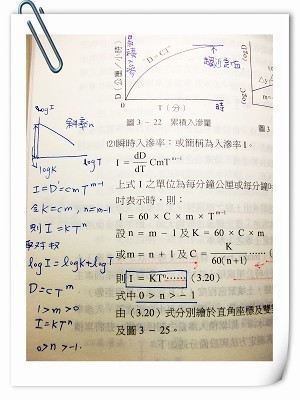 D（公厘／小時）
"D=CT^m"
趨近定值
T（分）
時
圖3－22 累積入滲量
圖3
logC
logI
斜率n
logT
logK
⑵瞬時入滲率：或簡稱為入滲率I。
I = dD/dT = CmT^m-1
上式I之單位為每分鐘公厘或每分鐘吋
吋表示時，則：
I = 60 × C × m × T^m-1
設n = m－1及K = 60 × C × m
或m = n + 1及C = K/60(n+1) ……(
則 I = KT^n ……(3.20)
式中0 > n >－1
由（3.20）式分別繪於直角座標及雙
及圖3－25。
I = D' = cmT^m-1
令K=cm, n=m-1
則 I = KT^n
取對數
logI = logK + logT
D = cT^m
1>m>0
I = KT^n
0>n>-1.